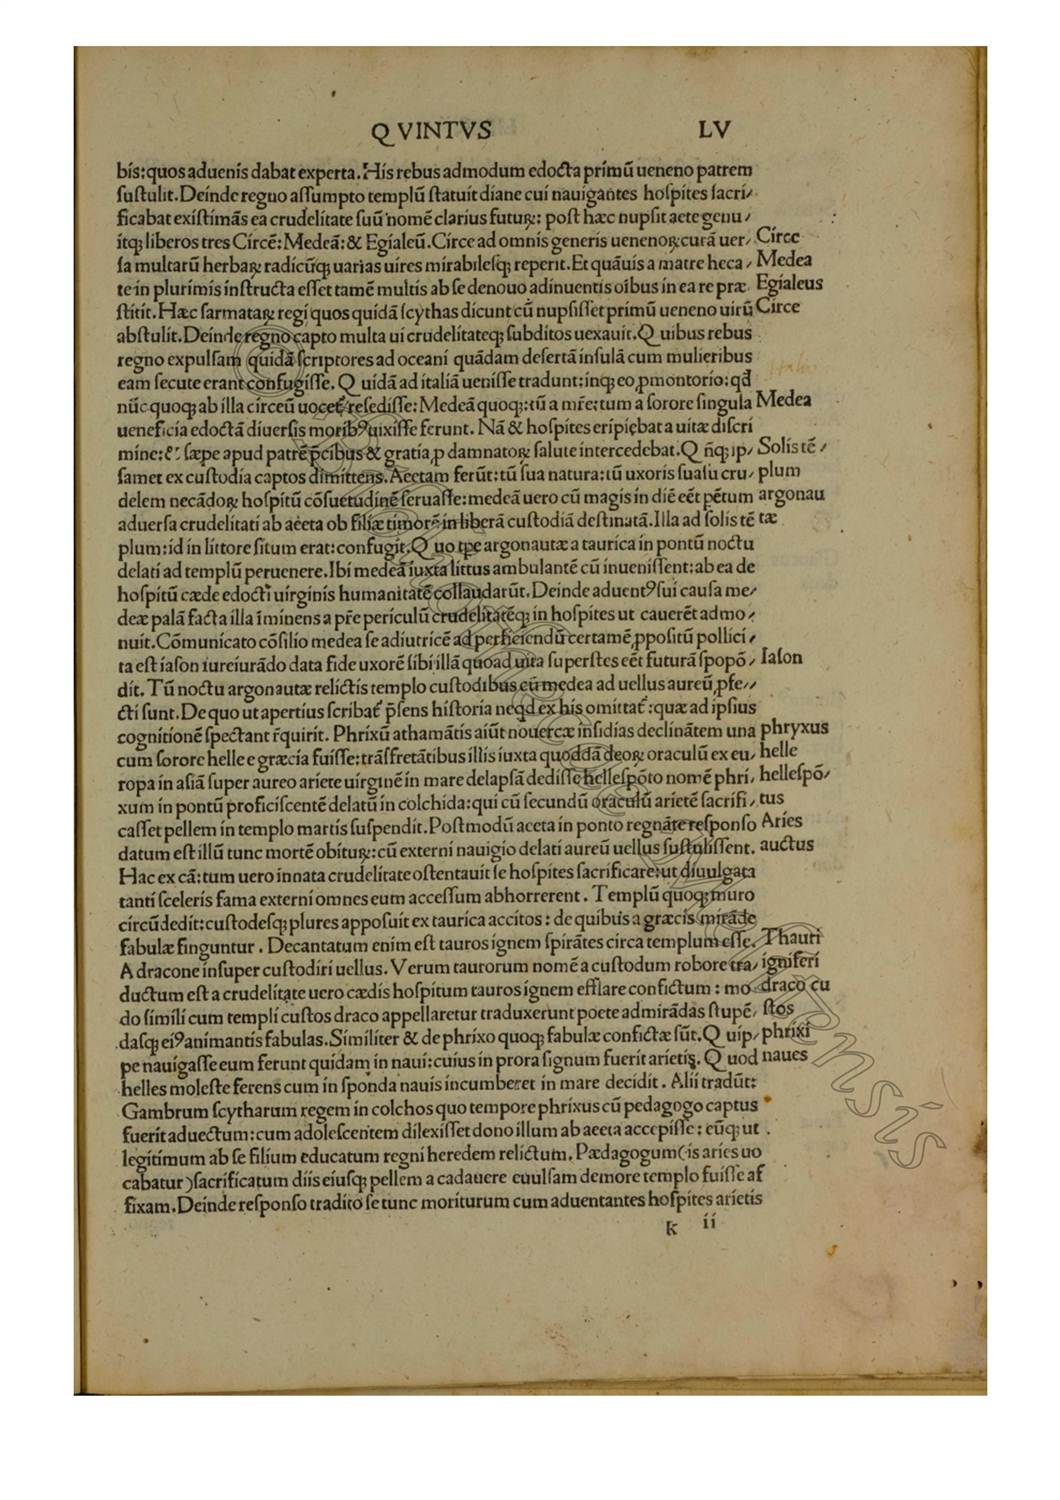 QVINTVS LV
bis:quos aduenis dabat experta. His rebus admodum edocta primū ueneno patrem
ſuſtulit. Deinde regno aſſumpto templū ſtatuit diane cui nauigantes hoſpites ſacri/
ficabat exiſtimās ea crudelitate ſuū nomē clarius futuꝝ: poſt hæc nupſit aete genu /
itq; liberos tres Circē: Medeā: & Egialeū. Circe ad omnis generis uenenoꝝ curā uer/ Circe
ſa multarū herbaꝝ radicūq; uarias uires mirabileſq; reperit. Et quāuis a matre heca / Medea
te in plurimis inſtructa eſſet tamē multis ab ſe denouo adinuentis oībus in ea re præ Egialeus
ſtitit. Hæc ſarmataꝝ regi quos quidā ſcythas dicunt cū nupſiſſet primū ueneno uirū Circe
abſtulit. Deinde regno capto multa ui crudelitateq; ſubditos uexauit. Quibus rebus
regno expulſam quidā ſcriptores ad oceani quādam deſertā inſulā cum mulieribus
eam ſecute erant confugiſſe. Quidā ad italiā ueniſſe tradunt: inq; eo ꝓmontorio: qd̄
nūc quoq; ab illa circeū uocet̄ reſediſſe: Medeā quoq;: tū a mr̄e: tum a ſorore ſingula Medea
ueneficia edoctā diuerſis moribꝰ uixiſſe ferunt. Nā & hoſpites eripiebat a uitæ diſcri
mine: & ſæpe apud patrē p̄cibus & gratia ꝓ damnatoꝝ ſalute intercedebat. Q ñq; ip/ Solis tē /
ſamet ex cuſtodia captos dimittens. Aeetam ferūt: tū ſua natura: tū uxoris ſuaſu cru/ plum
delem necādoꝝ hoſpitū cōſuetudinē ſeruaſſe: medeā uero cū magis in diē eēt ꝑētum argonau
aduerſa crudelitati ab aeeta ob filiæ timorē in liberā cuſtodiā deſtinatā. Illa ad ſolis tē tæ
plum: id in littore ſitum erat: confugit. Quo tꝑe argonautæ a taurica in pontū noctu
delati ad templū peruenere. Ibi medeā iuxta littus ambulantē cū inueniſſent: ab ea de
hoſpitū cæde edocti uirginis humanitatē collaudarūt. Deinde aduentꝰ ſui cauſa me/
deæ palā facta illa īminens a pr̄e periculū crudelitatēq; in hoſpites ut cauerēt admo /
nuit. Cōmunicato cōſilio medea ſe adiutricē ad perficiendū certamē ꝓpoſitū pollici /
ta eſt iaſon iureiurādo data fide uxorē ſibi illā quoad uita ſuperſtes eēt futurā ſpopō / Iaſon
dit. Tū noctu argonautæ relictis templo cuſtodibus cū medea ad uellus aureū ꝓfe //
cti ſunt. De quo ut apertius ſcribat̄ p̄ſens hiſtoria neqd ex his omittat̄: quæ ad ipſius
cognitionē ſpectant r̄quirit. Phrixū athamātis aiūt nouercæ inſidias declinātem una phryxus
cum ſorore helle e græcia fuiſſe: trāſfretātibus illis iuxta quoddā deoꝝ oraculū ex eu/ helle
ropa in aſiā ſuper aureo ariete uirginē in mare delapſā dediſſe helleſpōto nomē phri/ helleſpō/
xum in pontū proficiſcentē delatū in colchida: qui cū ſecundū oraculū arietē ſacrifi / tus
caſſet pellem in templo martis ſuſpendit. Poſtmodū aceta in ponto regnāte reſponſo Aries
datum eſt illū tunc mortē obituꝝ: cū externi nauigio delati aureū uellus ſuſtuliſſent. auctus
Hac ex cā: tum uero innata crudelitate oſtentauit ſe hoſpites ſacrificare: ut diuulgata
tanti ſceleris fama externi omnes eum acceſſum abhorrerent. Templū quoq; muro
circūdedit: cuſtodeſq; plures appoſuit ex taurica accitos: de quibus a græcis mirāde
fabulæ finguntur. Decantatum enim eſt tauros ignem ſpirātes circa templum eſſe. Thauri
A dracone inſuper cuſtodiri uellus. Verum taurorum nomē a cuſtodum robore tra/ igniferi
ductum eſt a crudelitate uero cædis hoſpitum tauros ignem efflare confictum: mo draco cu
do ſimili cum templi cuſtos draco appellaretur traduxerunt poete admirādas ſtupē/ ſtos
daſq; eiꝰ animantis fabulas. Similiter & de phrixo quoq; fabulæ confictæ ſūt. Quip/ phrixi
pe nauigaſſe eum ferunt quidam in naui: cuius in prora ſignum fuerit arietis. Quod naues
helles moleſte ferens cum in ſponda nauis incumberet in mare decidit. Alii tradūt:
Gambrum ſcytharum regem in colchos quo tempore phrixus cū pedagogo captus
fuerit aduectum: cum adoleſcentem dilexiſſet dono illum ab aeeta accepiſſe: eūq; ut
legitimum ab ſe filium educatum regni heredem relictum. Pædagogum (is aries uo
cabatur) ſacrificatum diis eiuſq; pellem a cadauere euulſam demore templo fuiſſe af
fixam. Deinde reſponſo tradito ſe tunc moriturum cum aduentantes hoſpites arietis
k ii